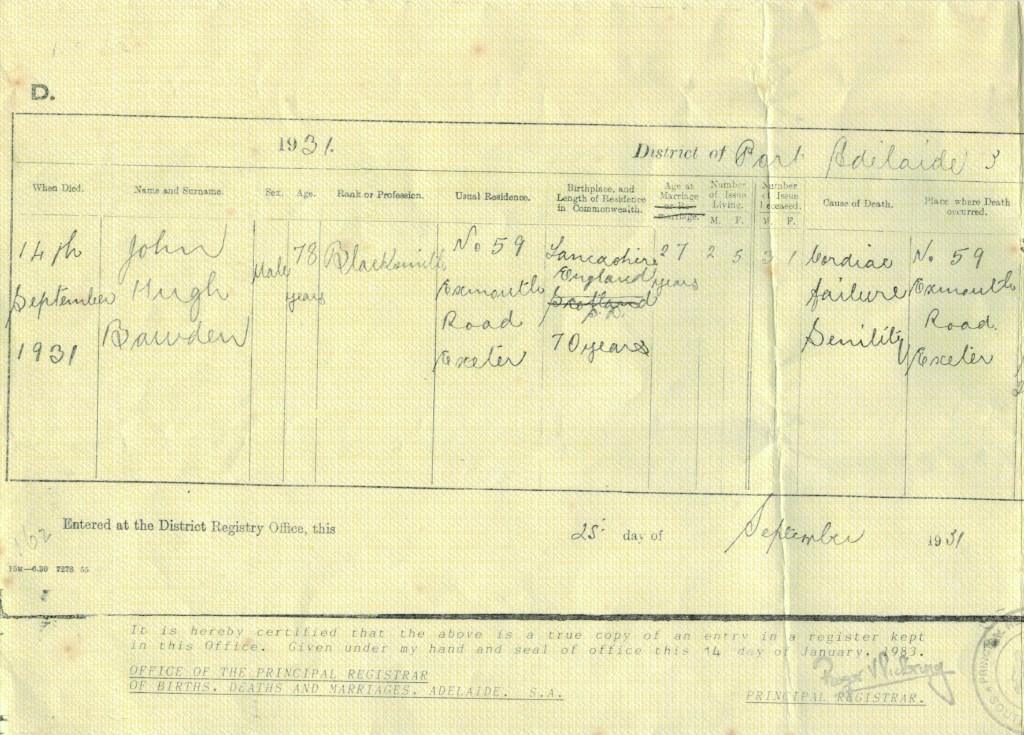 D.
1931. District of Port Adelaide 3
When Died.
Name and Surname.
Sex.
Age.
Rank or Profession.
Usual Residence.
Birthplace, and
Length of Residence
in Commonwealth.
Age at
Marriage
or Re-
marriage.
Number
of Issue
Living.
M. F.
Number
of Issue
Deceased.
M. F.
Cause of Death.
Place where Death
occurred.
14th
September
1931
John
Hugh
Bawden
Male
78
years
Blacksmith
No 59
Exmouth
Road
Exeter
Lancashire
England
Scotland
70 years
27
years
2 5
3 1
Cardiac
failure
Senility
No 59
Exmouth
Road.
Exeter
162
Entered at the District Registry Office, this 25 day of September 1931
15M—6.30 7278
It is hereby certified that the above is a true copy of an entry in a register kept
in this Office. Given under my hand and seal of office this 14 day of January, 1983.
OFFICE OF THE PRINCIPAL REGISTRAR
OF BIRTHS, DEATHS AND MARRIAGES, ADELAIDE. S.A.
PRINCIPAL REGISTRAR.